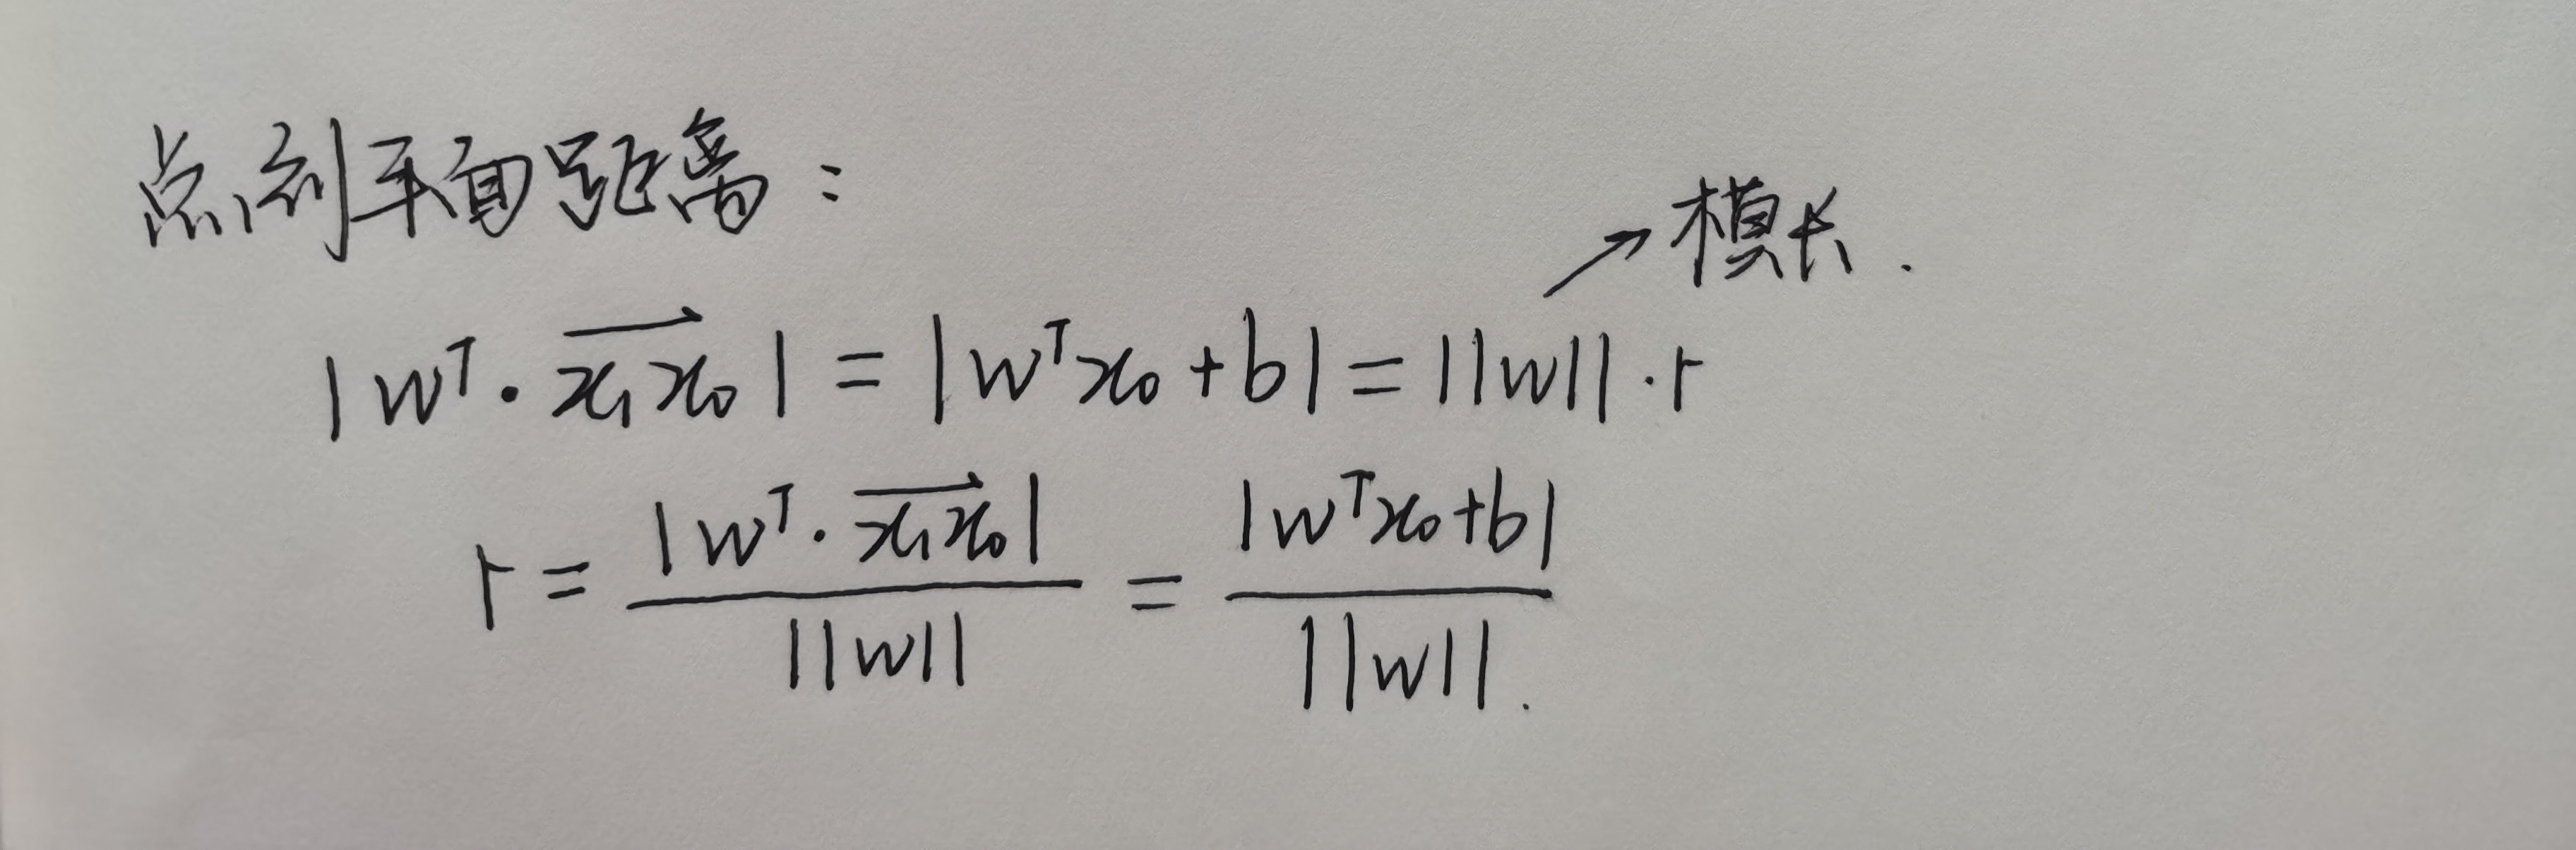 点到平面距离：
→模长.
|wᵀ·$\overrightarrow{x_1x_0}$| = |wᵀx₀+b| = ||w||·r
r = $\frac{|w^T·\overrightarrow{x_1x_0}|}{||w||}$ = $\frac{|w^Tx_0+b|}{||w||}$.